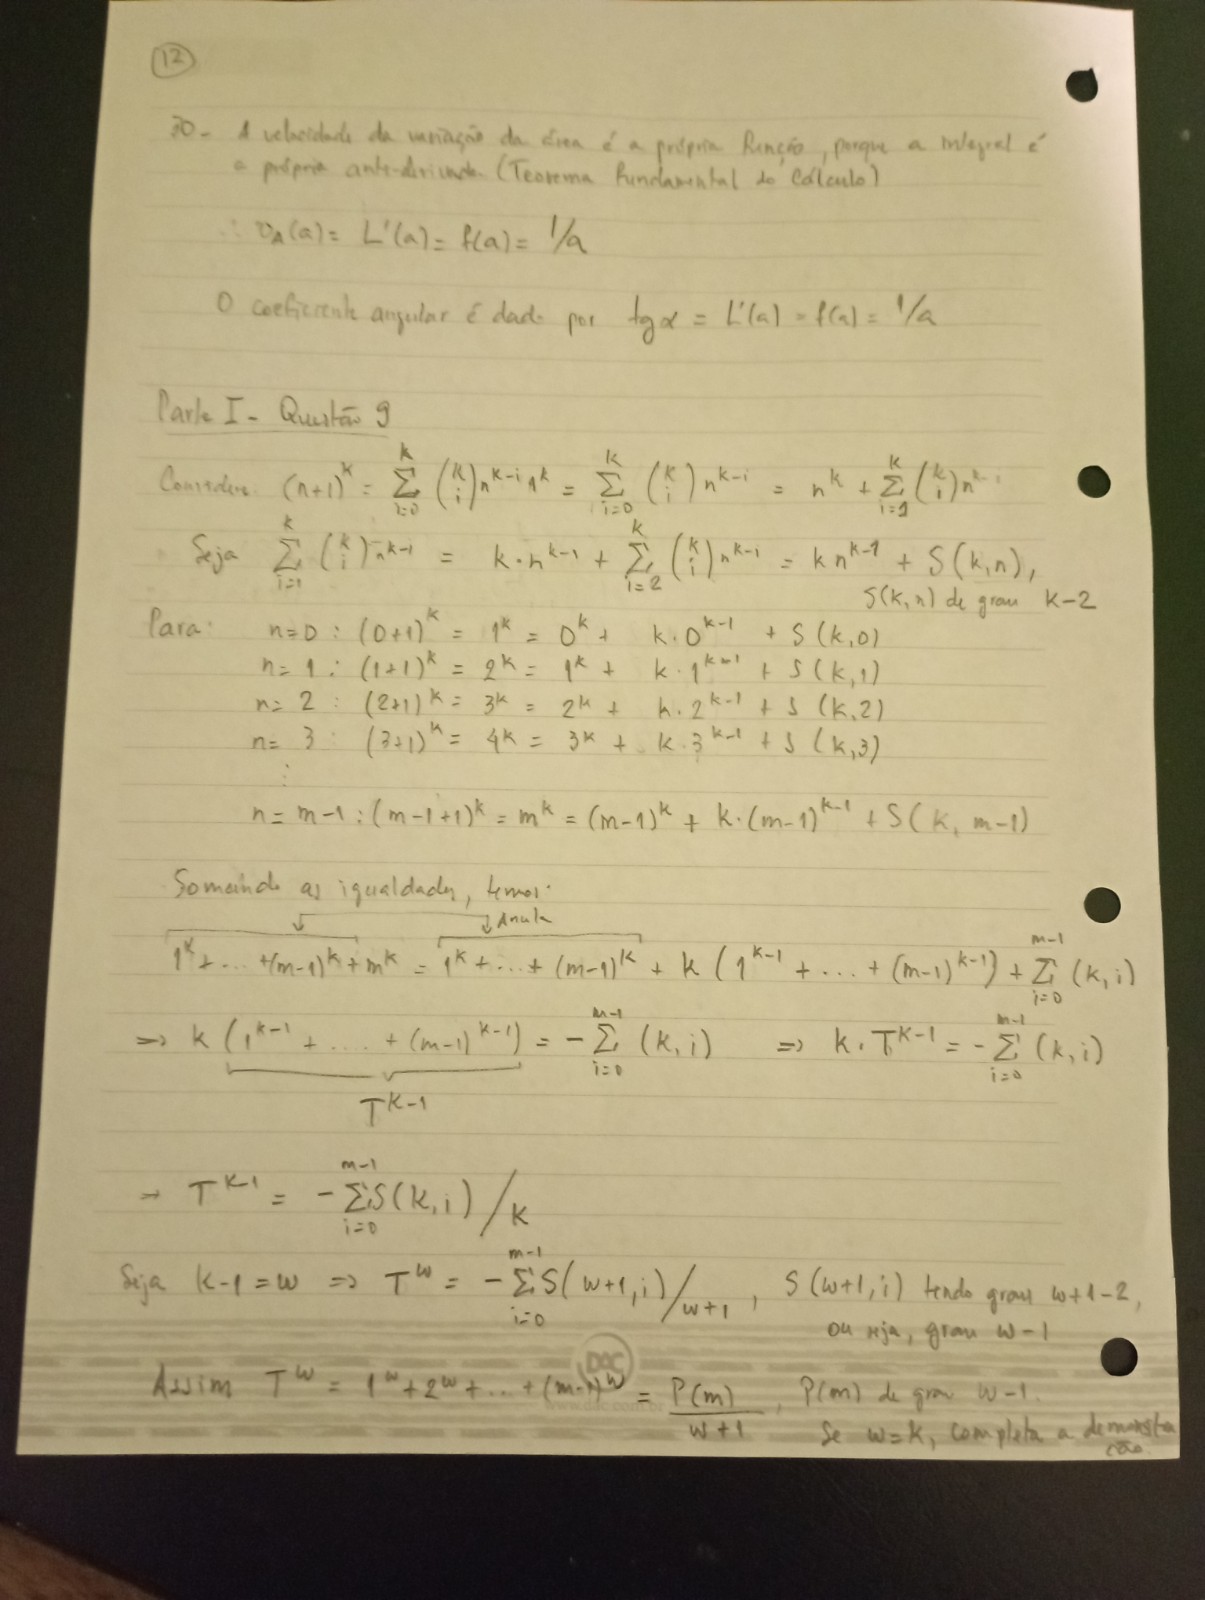 12
30- A velocidade da variação da área é a própria função, porque a integral é
a própria anti-derivada. (Teorema Fundamental do Cálculo)
∴ v_A(a) = L'(a) = f(a) = 1/a
O coeficiente angular é dado por tg α = L'(a) = f(a) = 1/a
Parte I - Questão 9
Considere (n+1)^k = Σ_{i=0}^{k} (k i) n^{k-i} 1^k = Σ_{i=0}^{k} (k i) n^{k-i} = n^k + Σ_{i=1}^{k} (k i) n^{k-i}
Seja Σ_{i=1}^{k} (k i) n^{k-1} = k·n^{k-1} + Σ_{i=2}^{k} (k i) n^{k-i} = kn^{k-1} + S(k,n),
S(k,n) de grau k-2
Para: n=0 : (0+1)^k = 1^k = 0^k + k·0^{k-1} + S(k,0)
n=1 : (1+1)^k = 2^k = 1^k + k·1^{k-1} + S(k,1)
n=2 : (2+1)^k = 3^k = 2^k + k·2^{k-1} + S(k,2)
n=3 : (3+1)^k = 4^k = 3^k + k·3^{k-1} + S(k,3)
⋮
n=m-1 : (m-1+1)^k = m^k = (m-1)^k + k·(m-1)^{k-1} + S(k, m-1)
Somando as igualdades, temos:
Anula
1^k + ... + (m-1)^k + m^k = 1^k + ... + (m-1)^k + k(1^{k-1} + ... + (m-1)^{k-1}) + Σ_{i=0}^{m-1} (k,i)
⇒ k(1^{k-1} + .... + (m-1)^{k-1}) = -Σ_{i=0}^{m-1} (k,i) ⇒ k·T^{k-1} = -Σ_{i=0}^{m-1} (k,i)
T^{k-1}
→ T^{k-1} = -Σ_{i=0}^{m-1} S(k,i)/k
Seja k-1=w ⇒ T^w = -Σ_{i=0}^{m-1} S(w+1,i)/w+1, S(w+1,i) tendo grau w+1-2,
ou seja, grau w-1
DAC
Assim T^w = 1^w + 2^w + ... + (m-1)^w = P(m)/w+1, P(m) de grau w-1.
www.dac.com.br
Se w=k, completa a demonstra
ção.